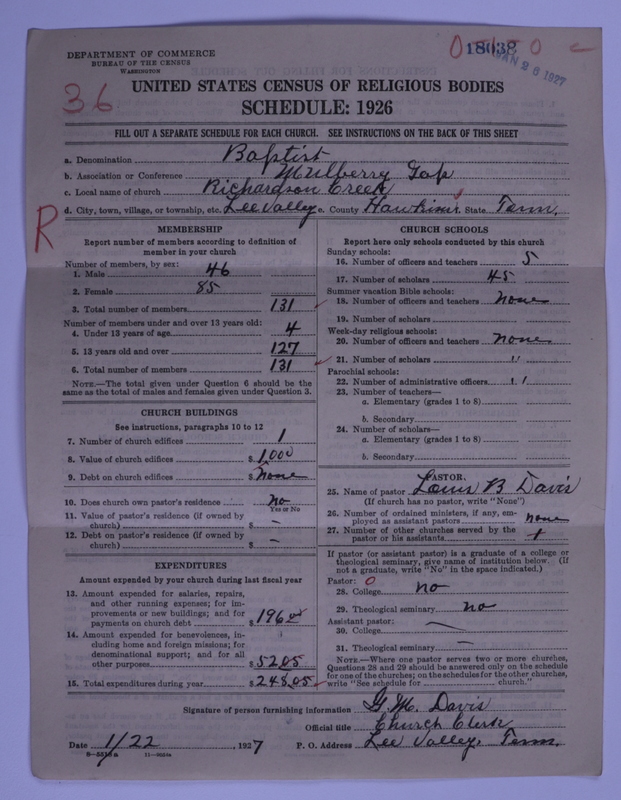 DEPARTMENT OF COMMERCE
BUREAU OF THE CENSUS
WASHINGTON
18038
JAN 26 1927
36
UNITED STATES CENSUS OF RELIGIOUS BODIES
SCHEDULE: 1926
FILL OUT A SEPARATE SCHEDULE FOR EACH CHURCH. SEE INSTRUCTIONS ON THE BACK OF THIS SHEET
a. Denomination Baptist
b. Association or Conference Mulberry Gap
c. Local name of church Richardson Creek
d. City, town, village, or township, etc. Lee Valley e. County Hawkins State Tenn.
R
MEMBERSHIP
Report number of members according to definition of
member in your church
Number of members, by sex:
1. Male 46
2. Female 85
3. Total number of members 131
Number of members under and over 13 years old:
4. Under 13 years of age 4
5. 13 years old and over 127
6. Total number of members 131
NOTE.—The total given under Question 6 should be the
same as the total of males and females given under Question 3.
CHURCH BUILDINGS
See instructions, paragraphs 10 to 12
7. Number of church edifices 1
8. Value of church edifices $ 1,000
9. Debt on church edifices $ None
10. Does church own pastor's residence no
Yes or No
11. Value of pastor's residence (if owned by
church) $ –
12. Debt on pastor's residence (if owned by
church) $ –
EXPENDITURES
Amount expended by your church during last fiscal year
13. Amount expended for salaries, repairs,
and other running expenses; for im-
provements or new buildings; and for
payments on church debt $ 196
14. Amount expended for benevolences, in-
cluding home and foreign missions; for
denominational support; and for all
other purposes $ 52.05
15. Total expenditures during year $ 248.05
CHURCH SCHOOLS
Report here only schools conducted by this church
Sunday schools:
16. Number of officers and teachers 5
17. Number of scholars 45
Summer vacation Bible schools:
18. Number of officers and teachers none
19. Number of scholars
Week-day religious schools:
20. Number of officers and teachers none
21. Number of scholars "
Parochial schools:
22. Number of administrative officers "
23. Number of teachers—
a. Elementary (grades 1 to 8)
b. Secondary
24. Number of scholars—
a. Elementary (grades 1 to 8)
b. Secondary
PASTOR
25. Name of pastor Louis B Davis
(If church has no pastor, write "None")
26. Number of ordained ministers, if any, em-
ployed as assistant pastors none
27. Number of other churches served by the
pastor or his assistants 1
If pastor (or assistant pastor) is a graduate of a college or
theological seminary, give name of institution below. (If
not a graduate, write "No" in the space indicated.)
Pastor: 0
28. College no
29. Theological seminary no
Assistant pastor:
30. College —
31. Theological seminary —
NOTE.—Where one pastor serves two or more churches,
Questions 28 and 29 should be answered only on the schedule
for one of the churches; on the schedules for the other churches,
write "See schedule for church."
Signature of person furnishing information G. M. Davis
Official title Church Clerk
Date 1/22, 1927 P. O. Address Lee Valley, Tenn.